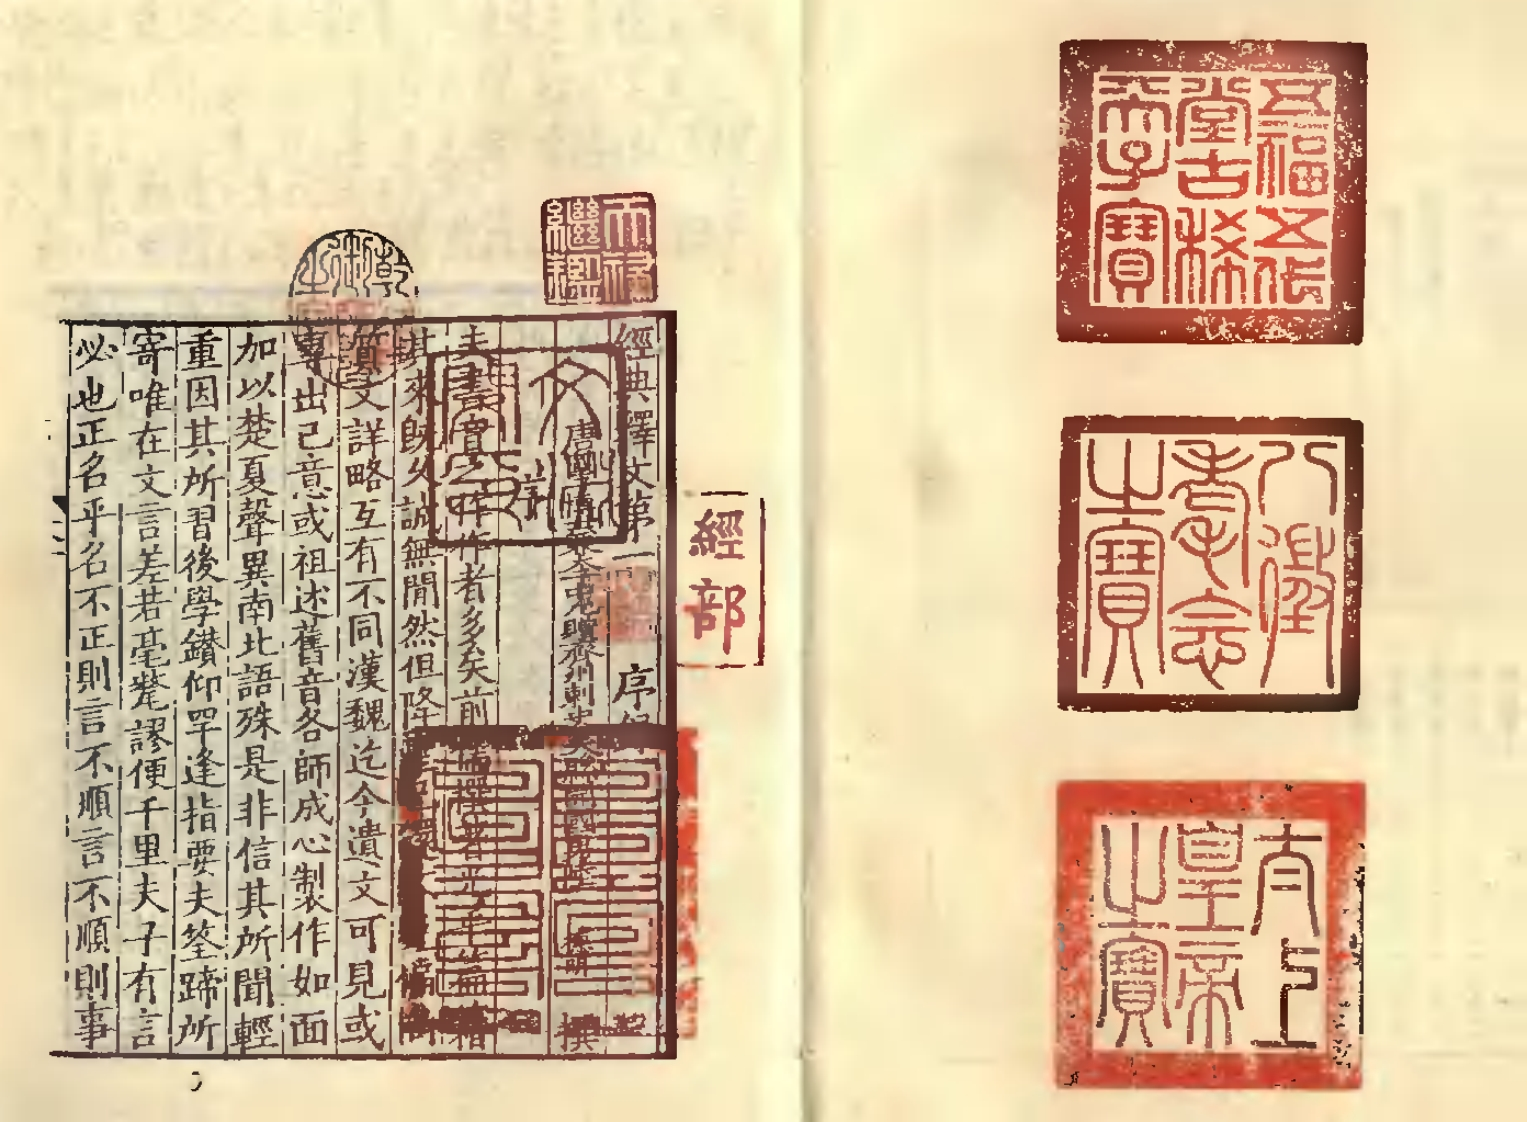 五福五代
堂古稀
天子寶
八徵
耄念
之寶
太上
皇帝
之寶
經部
天祿
繼鑑
乾御
文淵
閣寶
經典釋文第一
序錄
撰
夫書音之作作者多矣前儒撰著光乎篇籍
其來既久誠無閒然但降
偏尚
質文詳略互有不同漢魏迄今遺文可見或
專出己意或祖述舊音各師成心製作如面
加以楚夏聲異南北語殊是非信其所聞輕
重因其所習後學鑽仰罕逢指要夫筌蹄所
寄唯在文言差若毫釐謬便千里夫子有言
必也正名乎名不正則言不順言不順則事